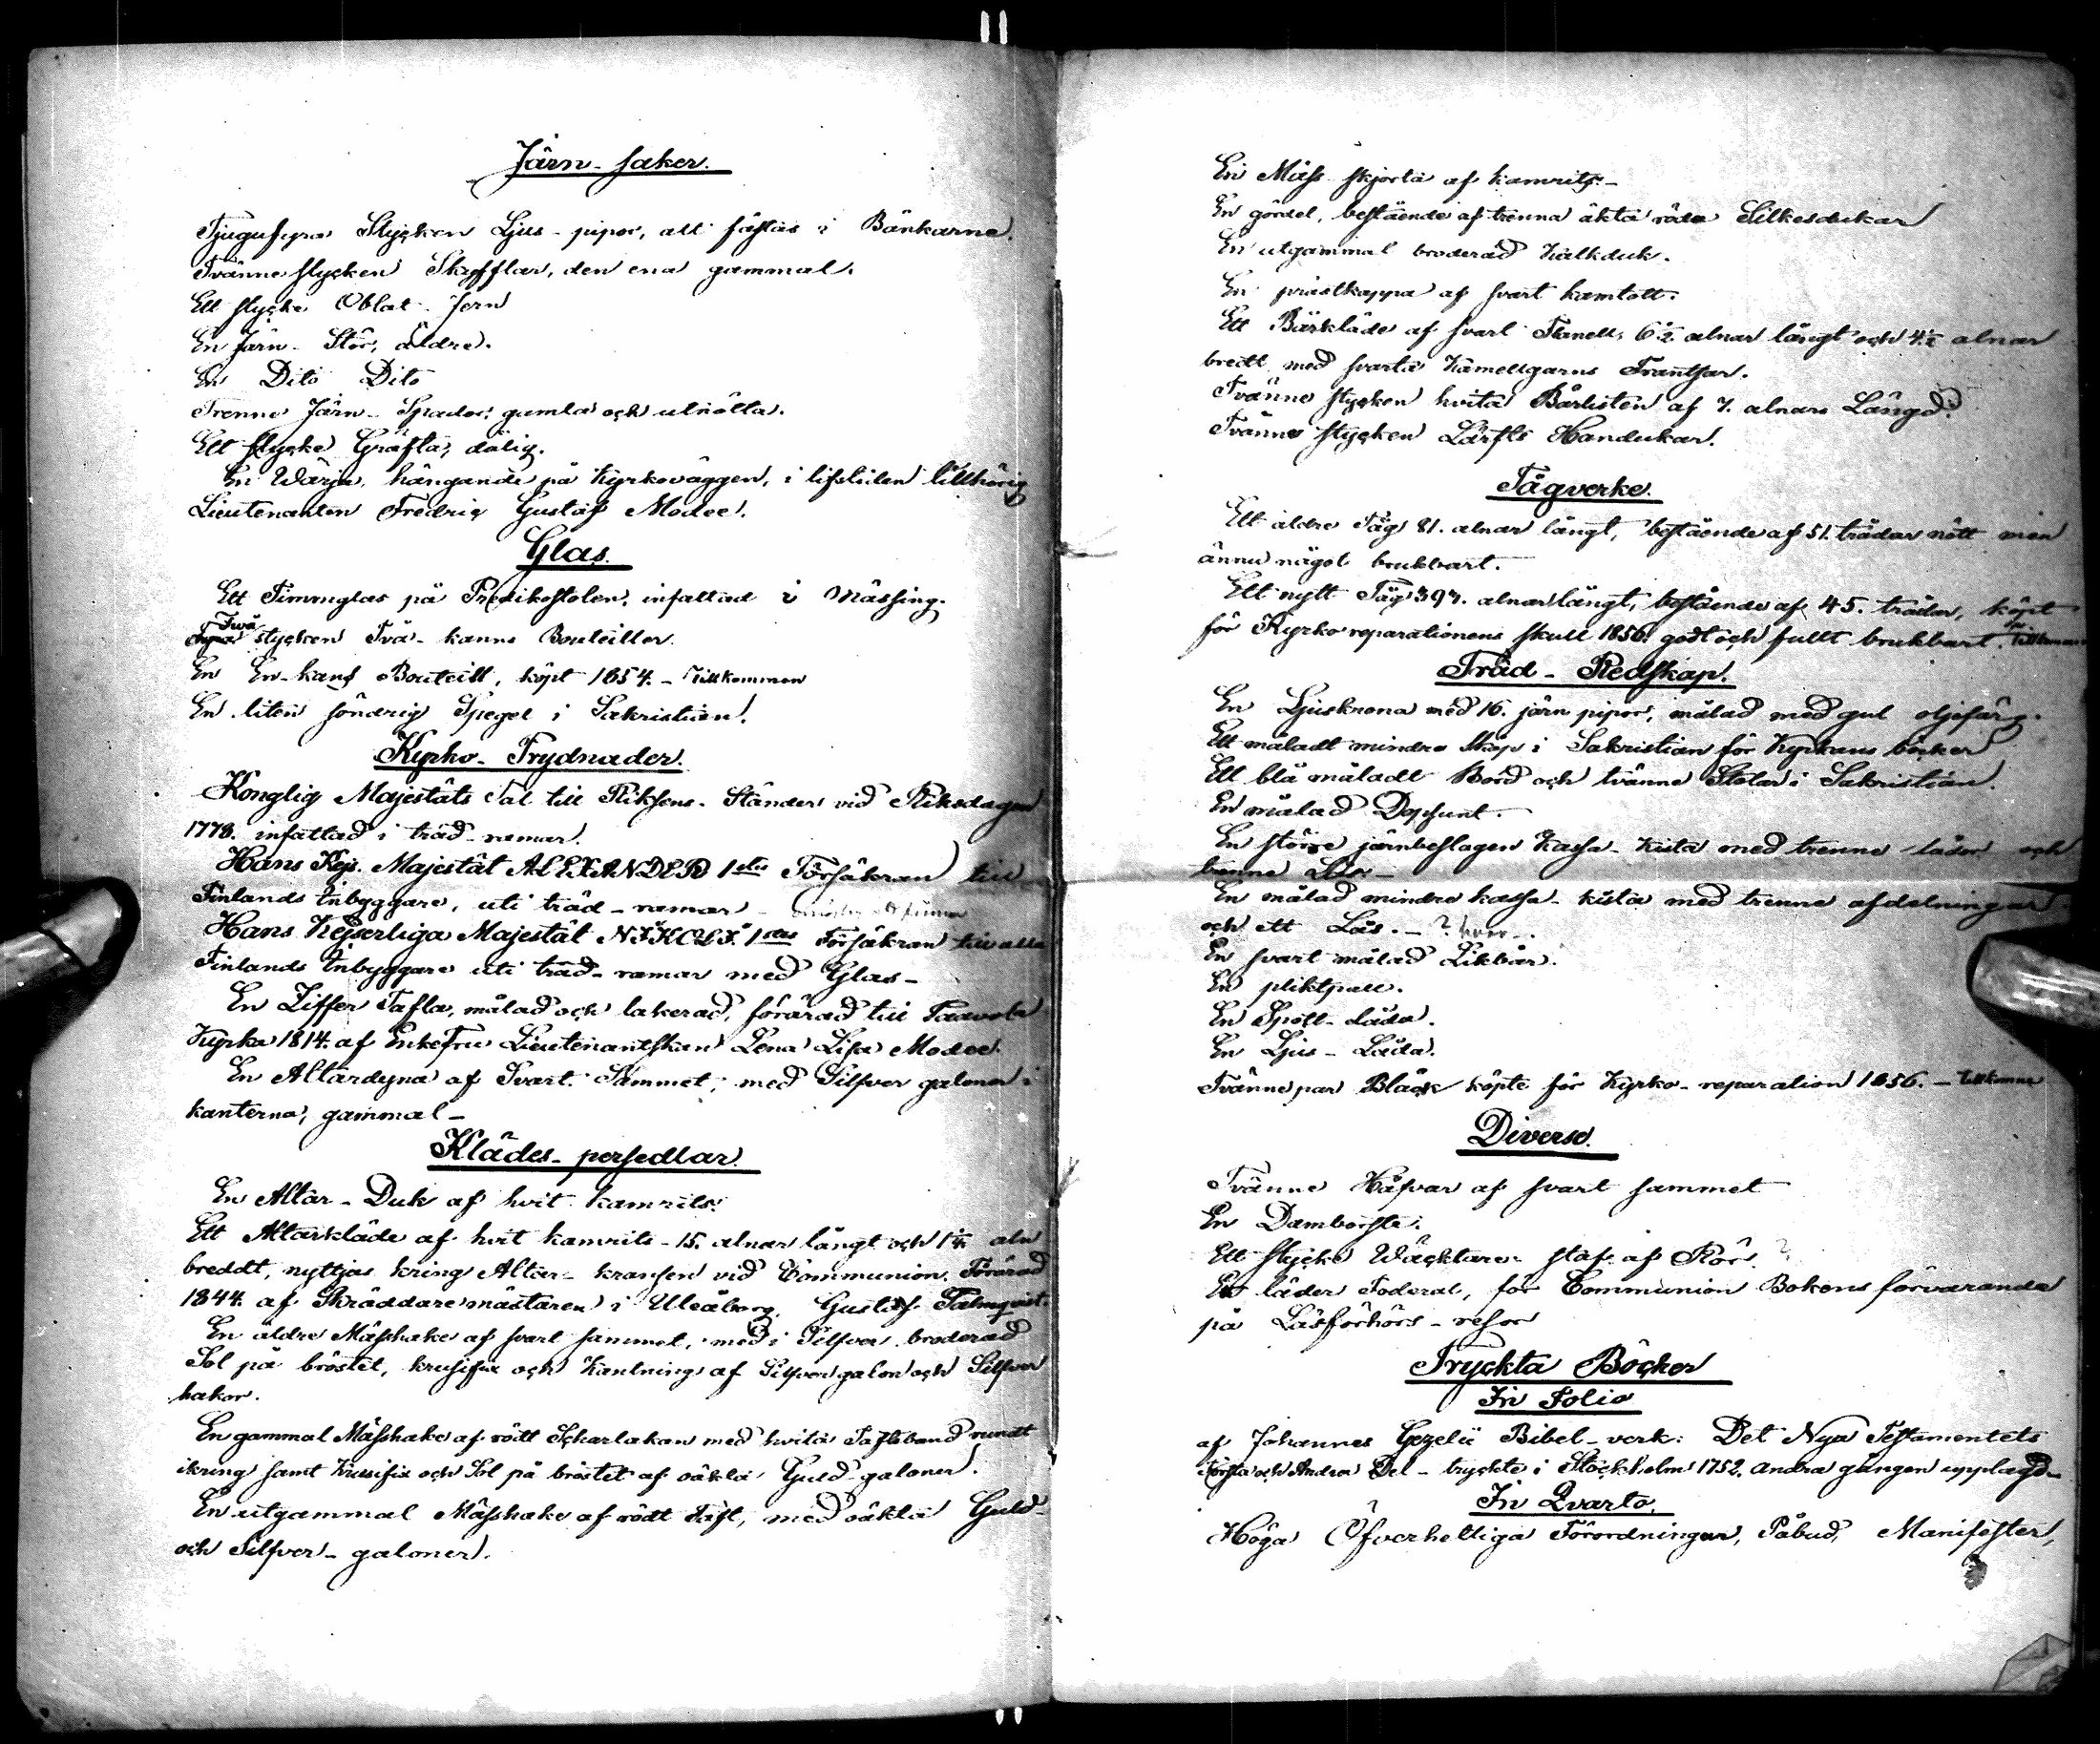 Järn-saker.
Tjugufyra Stycken Ljus-pipor, att fästas i Bänkarne.
Tvänne stycken Skyfflar, den ena gammal.
Ett stycke Oblat-Jern
En Järn-Stör, äldre.
En Dito Dito
Trenne Järn-Spador, gamla och utnötta.
Ett stycke Gräfta, dålig.
En Wärja, hängande på Kyrkoväggen, i lifstiden tillhörig
Lieutenanten Fredric Gustaf Modee.
Glas.
Ett Timmglas på Predikostolen, infattad i Mässing.
Två
stycken Två-kanns Bouteiller.
En En-kans Bouteill, köpt 1854. - Tillkommen
En liten söndrig Spegel i Sakristian.
Kyrko-Prydnader.
Konglig Majestäts Tal till Riksens-Ständer vid Riksdagen
1778. infattad i träd-ramar.
Hans Kejs. Majestät ALEXANDER 1stes Försäkran till
Finlands Inbyggare, uti träd-ramar -
Hans Kejserliga Majestät NIKOLI 1stes Försäkran till alla
Finlands Inbyggare uti träd-ramar med Glas-
En Ziffer Tafla, målad och lakerad, förärad till Paavola
Kyrka 1814. af Enkefru Lieutenantskan Lena Lisa Modee.
En Altardyna af Svart Sammet, med Silfver galoner i
kanterna, gammal-
Klädes-persedlar.
En Altar-Duk af hvit kamrits.
Ett Altarkläde af hvit kamrits-15. alnar långt och 1 1/4 aln
breddt, nyttjas kring Altar-kransen vid Communion. Förärad
1844. af Skräddaremästaren i Uleåborg, Gustaf Palmqvist.
En äldre Mässhake af svart sammet, med i Silfver broderad
Sol på bröstet, krusifix och Kantning af Silfver galon och Silfver
hakor.
En gammal Mässhake af rödt Scharlakan med hvita Taftsband rundt
ikring samt Krusifix och Sol på bröstet af oäkta Guld-galoner.
En utgammal Mässhake af rödt Taft, med oäkta Guld-
och Silfver-galoner.
En Mäss-skjorta af kamrits-
En gördel, bestående af trenna äkta röda Silkesdukar
En utgammal broderad Kalkduk.
En prästkappa af svart kamlott.
Ett Bårkläde af svart Flanell, 6 1/2 alnar långt och 4 1/2 alnar
bredt med svarta Kamellgarns Frantsar.
Tvänne stycken hvita Bårlisten af 7. alnars Längd.
Tvänne stycken Lärfts Handukar.
Tågverke.
Ett äldre Tåg 81. alnar långt, bestående af 51. trådar nött men
ännu något brukbart.
Ett nytt Tåg 397. alnar långt, bestående af 45. trådar, köpt
för Kyrko reparationens skull 1856. godt och fullt brukbart.
Träd-Redskap.
En Ljuskrona med 16. järn pipor, målad med gul oljefärg.
Ett måladt mindre Skåp i Sakristian för Kyrkans böcker
Ett blå måladt Bord och tvänne Stolar i Sakristian.
En målad Dopfunt.
En större järnbeslagen Kassa-Kista med trenne låsor och
trenne Lås-
En målad mindre kassa-kista med trenne afdelningar
och ett Lås.-
En svart målad Likbår.
En pliktpall.
En Spott-Låda.
En Ljus-Låda.
Tvänne par Black köpte för Kyrko-reparation 1856. - Tillkomne
Diverse.
Tvänne Håfvar af svart sammet
En Damborste.
Ett stycke Wäcktare-staf af Rör. ?
Ett läder Foderal, för Communion Bokens förvarande
på Läsförhörs-resor
Tryckta Böcker
In Folio
af Johannes Gezelii Bibel-verk: Det Nya Testamentets
Första och Andra Del-tryckte i Stockholm 1752. Andra gången upplagd-
In Qvarto.
Höga Öfverhetliga Förordningar, Påbud, Manifester,